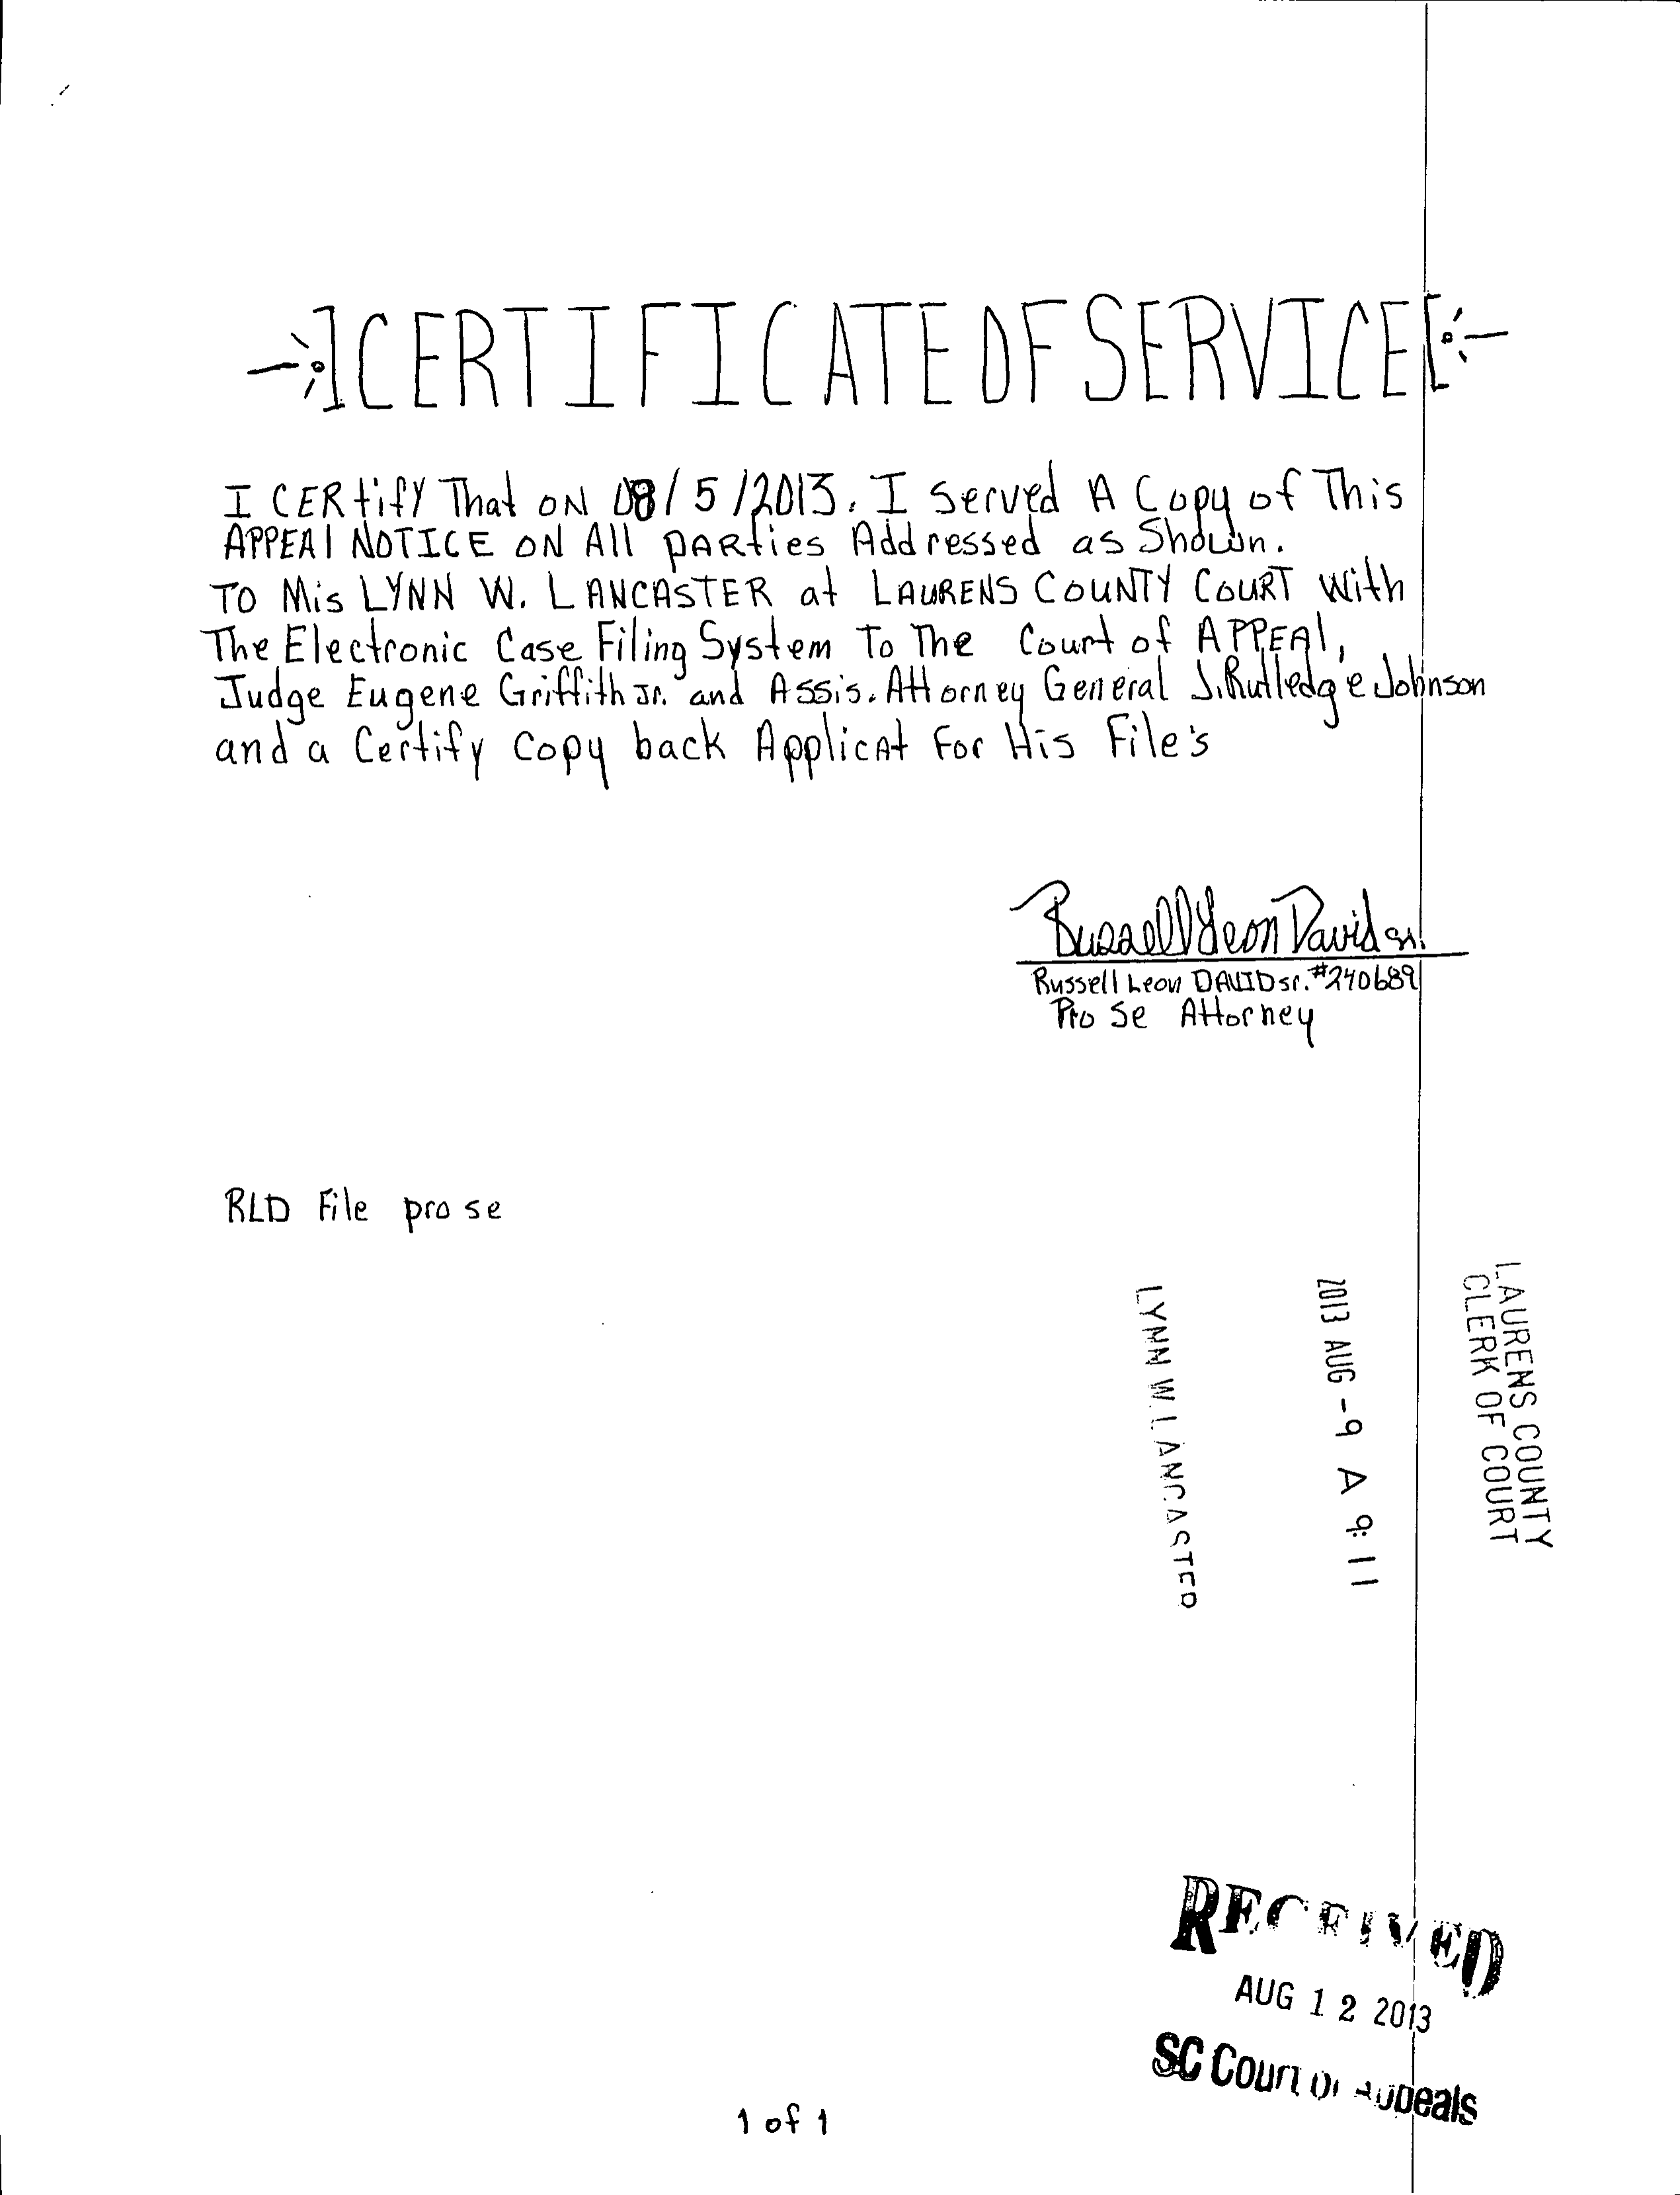 CERTIFICATE OF SERVICE
I CERtify That ON 08/5/2013. I Served A Copy of This
APPEAl NOTICE ON All PARties Addressed as Shown.
TO Mis LYNN W. LANCASTER at LAURENS COUNTY COURT With
The Electronic Case Filing System To The Court of APPEAl,
Judge Eugene Griffith Jr. and Assis. Attorney General J. Rutledge Johnson
and a Certify Copy back ApplicAt For His File's
Russell Leon David Sr.
Russell Leon DAVID sr. #240689
Pro Se Attorney
RLD File pro se
LAURENS COUNTY
CLERK OF COURT
2013 AUG -9 A 9:11
LYNN W. LANCASTER
RECEIVED
AUG 12 2013
SC Court of Appeals
1 of 1